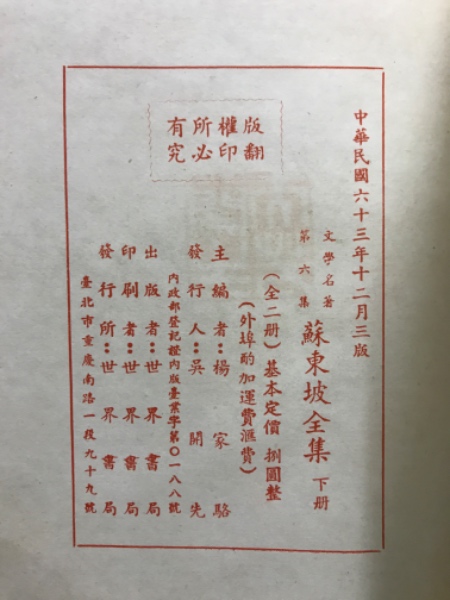 中華民國六十三年十二月三版
文學名著
第六集
蘇東坡全集 下册
(全二册)基本定價 捌圓整
(外埠酌加運費滙費)
主編者:楊家駱
發行人:吳開先
內政部登記證內版臺業字第〇一八八號
出版者:世界書局
印刷者:世界書局
發行所:世界書局
臺北市重慶南路一段九十九號
版權所有
翻印必究